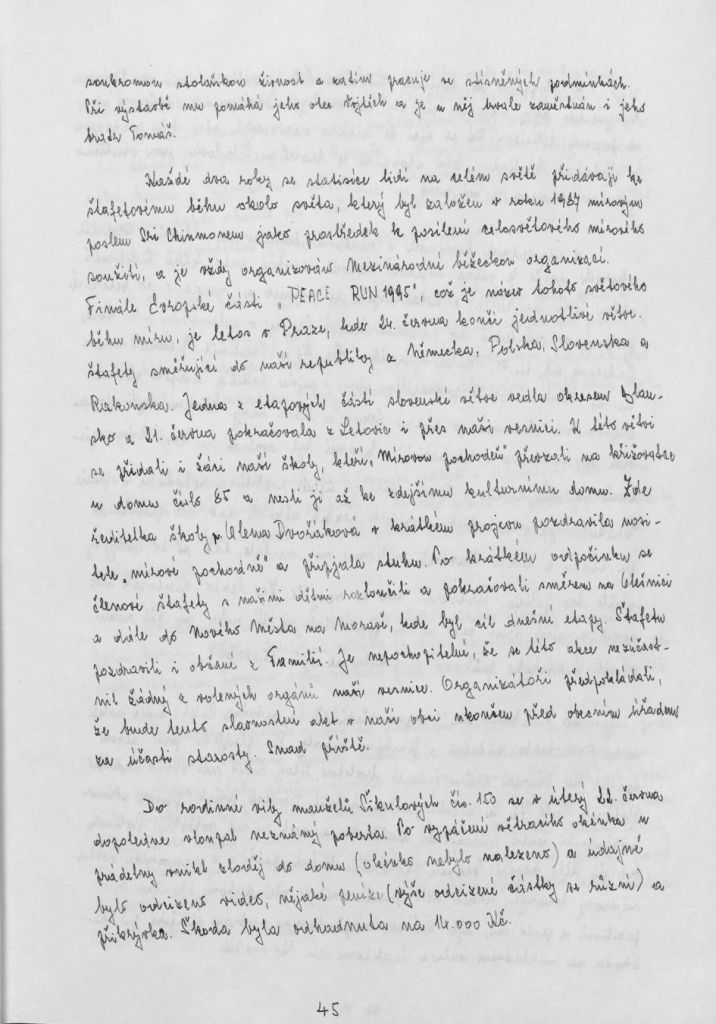 soukromou stolařskou živnost a zatím pracuje ve stísněných podmínkách.
Při výstavbě mu pomáhá jeho otec Vojtěch a je u něj trvale zaměstnán i jeho
bratr Tomáš.
Každé dva roky se statisíce lidí na celém světě přidávají ke
štafetovému běhu okolo světa, který byl založen v roku 1987 mírovým
poslem Sri Chinmonem jako prostředek k posílení celosvětového mírového
soužití, a je vždy organizován Mezinárodní běžeckou organizací.
Finále Evropské části „PEACE RUN 1995", což je název tohoto světového
běhu míru, je letos v Praze, kde 24. června končí jednotlivé větve
štafety směřující do naší republiky z Německa, Polska, Slovenska a
Rakouska. Jedna z etapových částí slovenské větve vedla okresem Blan-
sko a 21. června pokračovala z Letovic i přes naši vesnici. K této větvi
se přidali i žáci naší školy, kteří „Mírovou pochodeň" převzali na křižovatce
u domu číslo 85 a nesli ji až ke zdejšímu kulturnímu domu. Zde
ředitelka školy p. Alena Dvořáková v krátkém projevu pozdravila nosi-
tele „mírové pochodně" a připjala stuhu. Po krátkém odpočinku se
členové štafety s našimi dětmi rozloučili a pokračovali směrem na Olešnici
a dále do Nového Města na Moravě, kde byl cíl dnešní etapy. Štafetu
pozdravili i občané z Tamilií. Je nepochopitelné, že se této akce nezúčast-
nil žádný z volených orgánů naší vesnice. Organizátoři předpokládali,
že bude tento slavnostní akt v naší obci ukončen před obecním úřadem
za účasti starosty. Snad příště.
Do rodinné vily manželů Šikulových čís. 150 se v úterý 22. června
dopoledne vloupal neznámý poberta. Po vypáčení větracího okénka u
prádelny vnikl zloděj do domu (okénko nebylo nalezeno) a údajně
bylo odcizeno video, nějaké peníze (výše odcizené částky se různí) a
přikrývka. Škoda byla odhadnuta na 14.000 Kč.
45